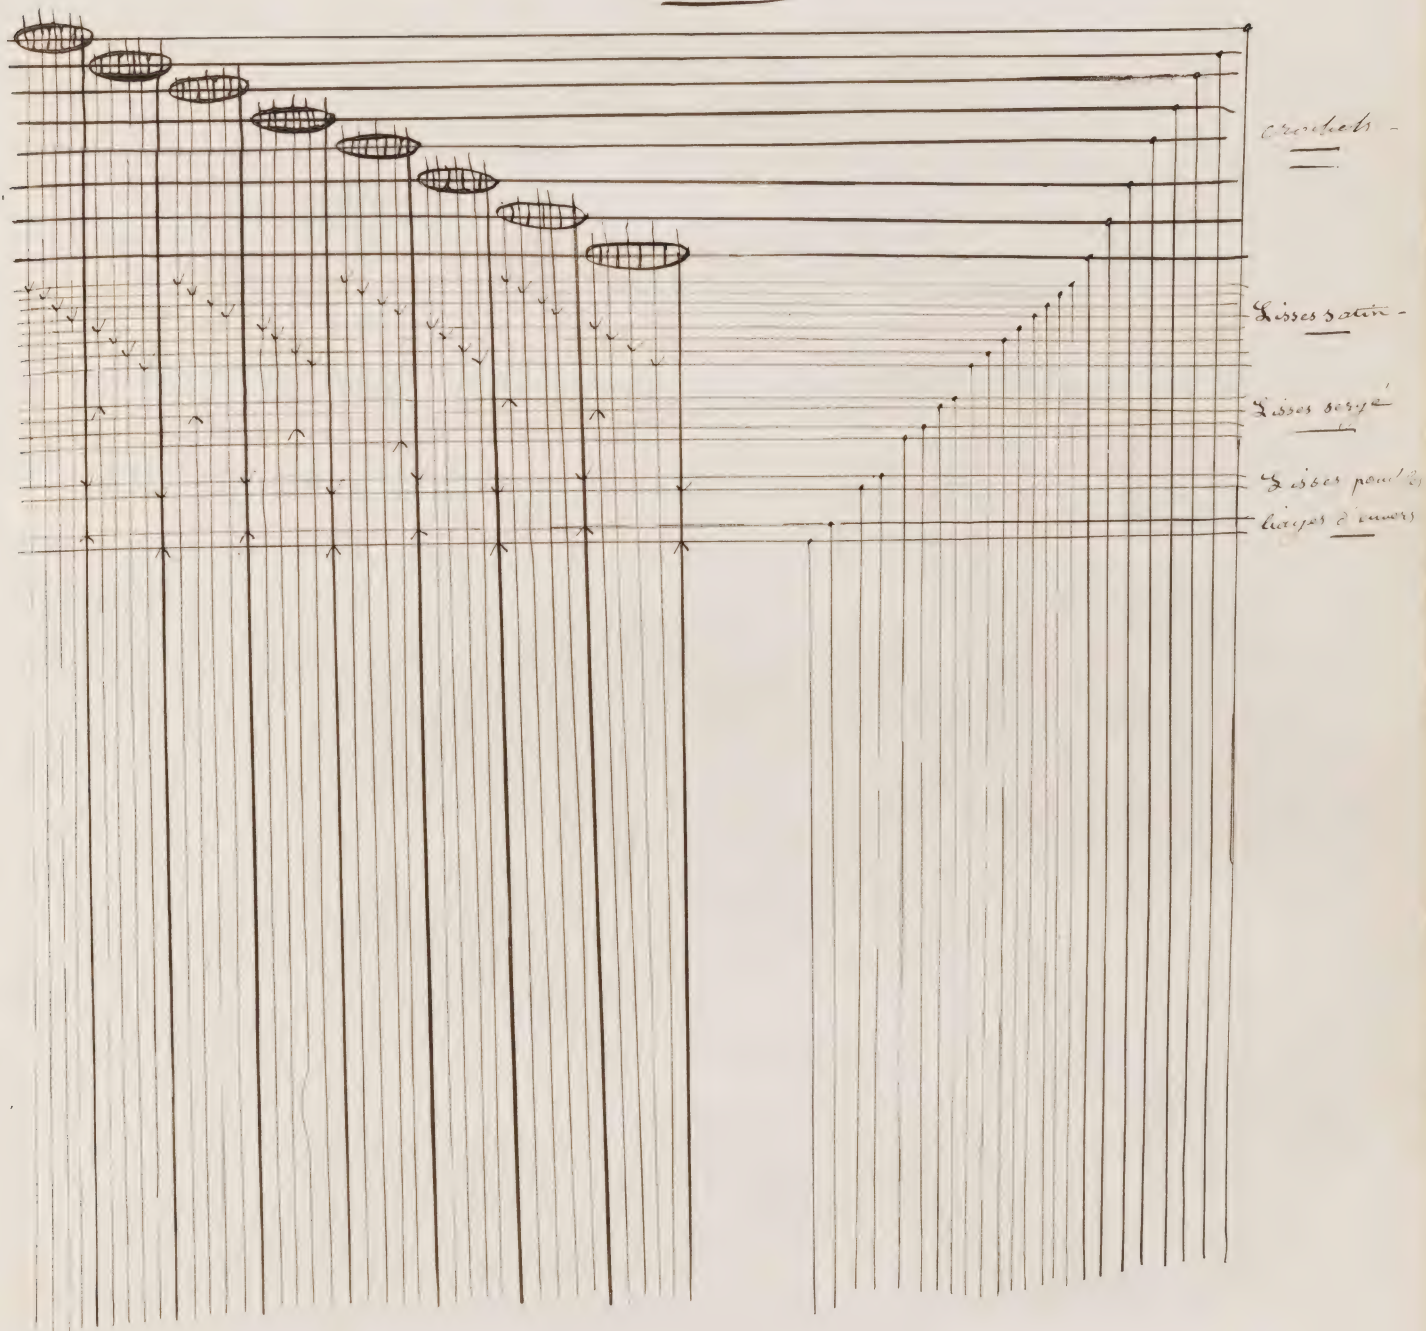 crochets -
Lisses satin -
Lisses sergé
Lisses pour les
liages d'envers